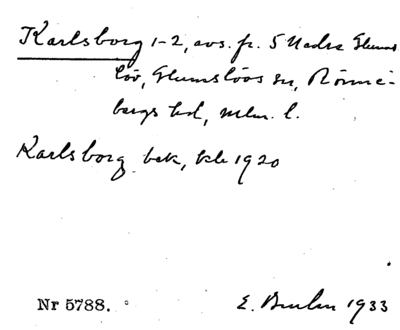 Karlsborg 1-2, avs. fr. 5 Nedra Glums
löv, Glumslövs sn, Rönne-
bergs hd, Mlm. l.
Karlsborg bek, kbr 1920
Nr 5788.
E. Brulin 1933